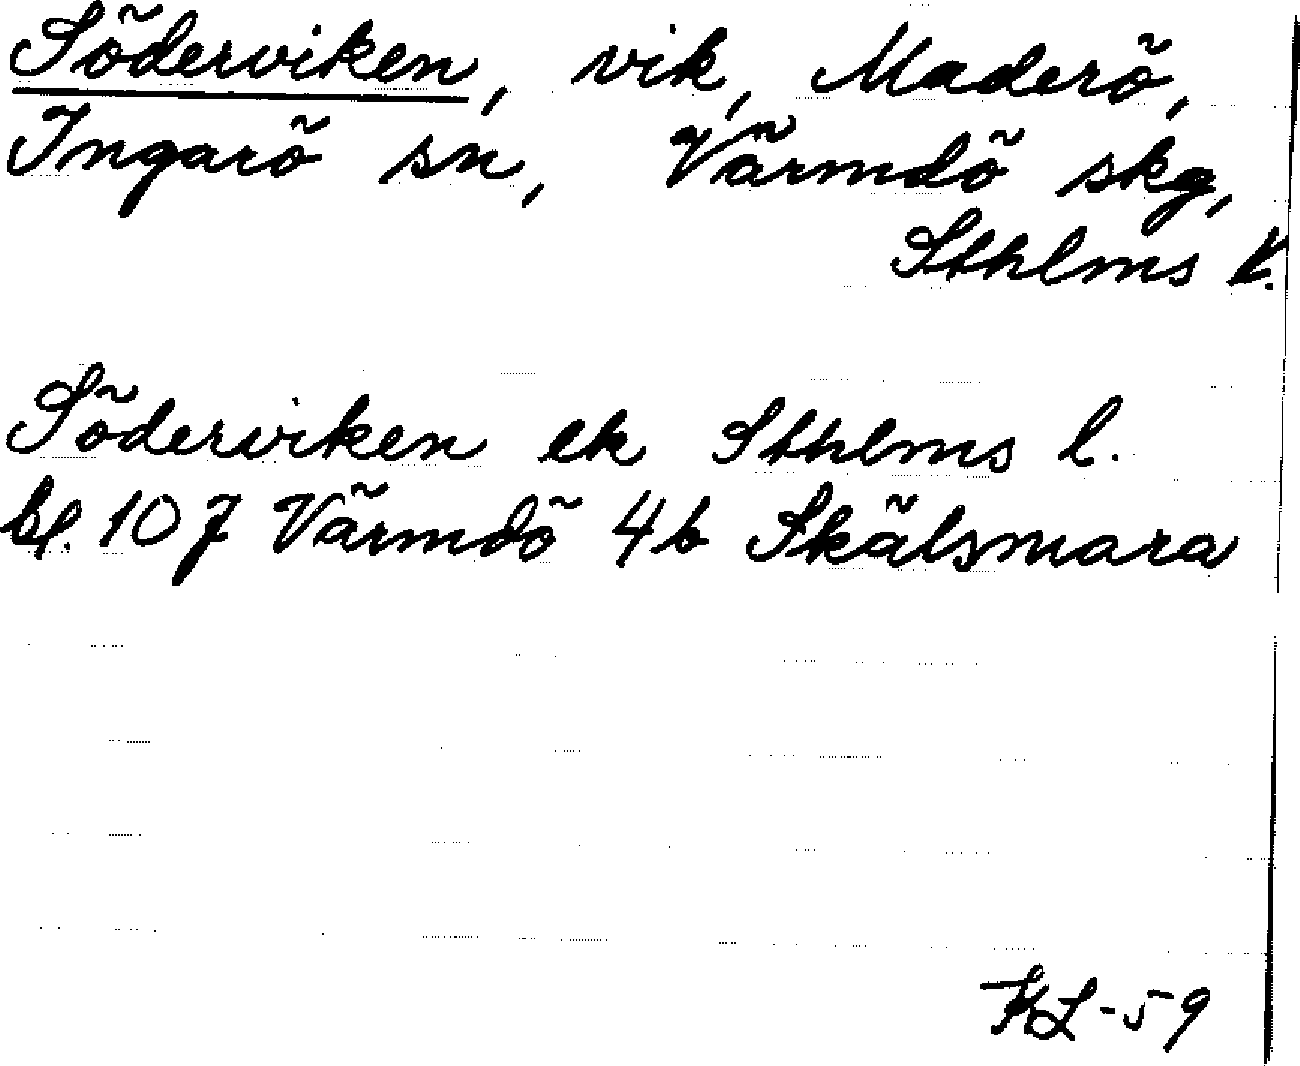 Söderviken, vik, Maderö,
Ingarö sn, Värmdö skg,
Sthlms l.
Söderviken ek Sthlms l.
bl. 107 Värmdö 4b Skälsmara
KL-59